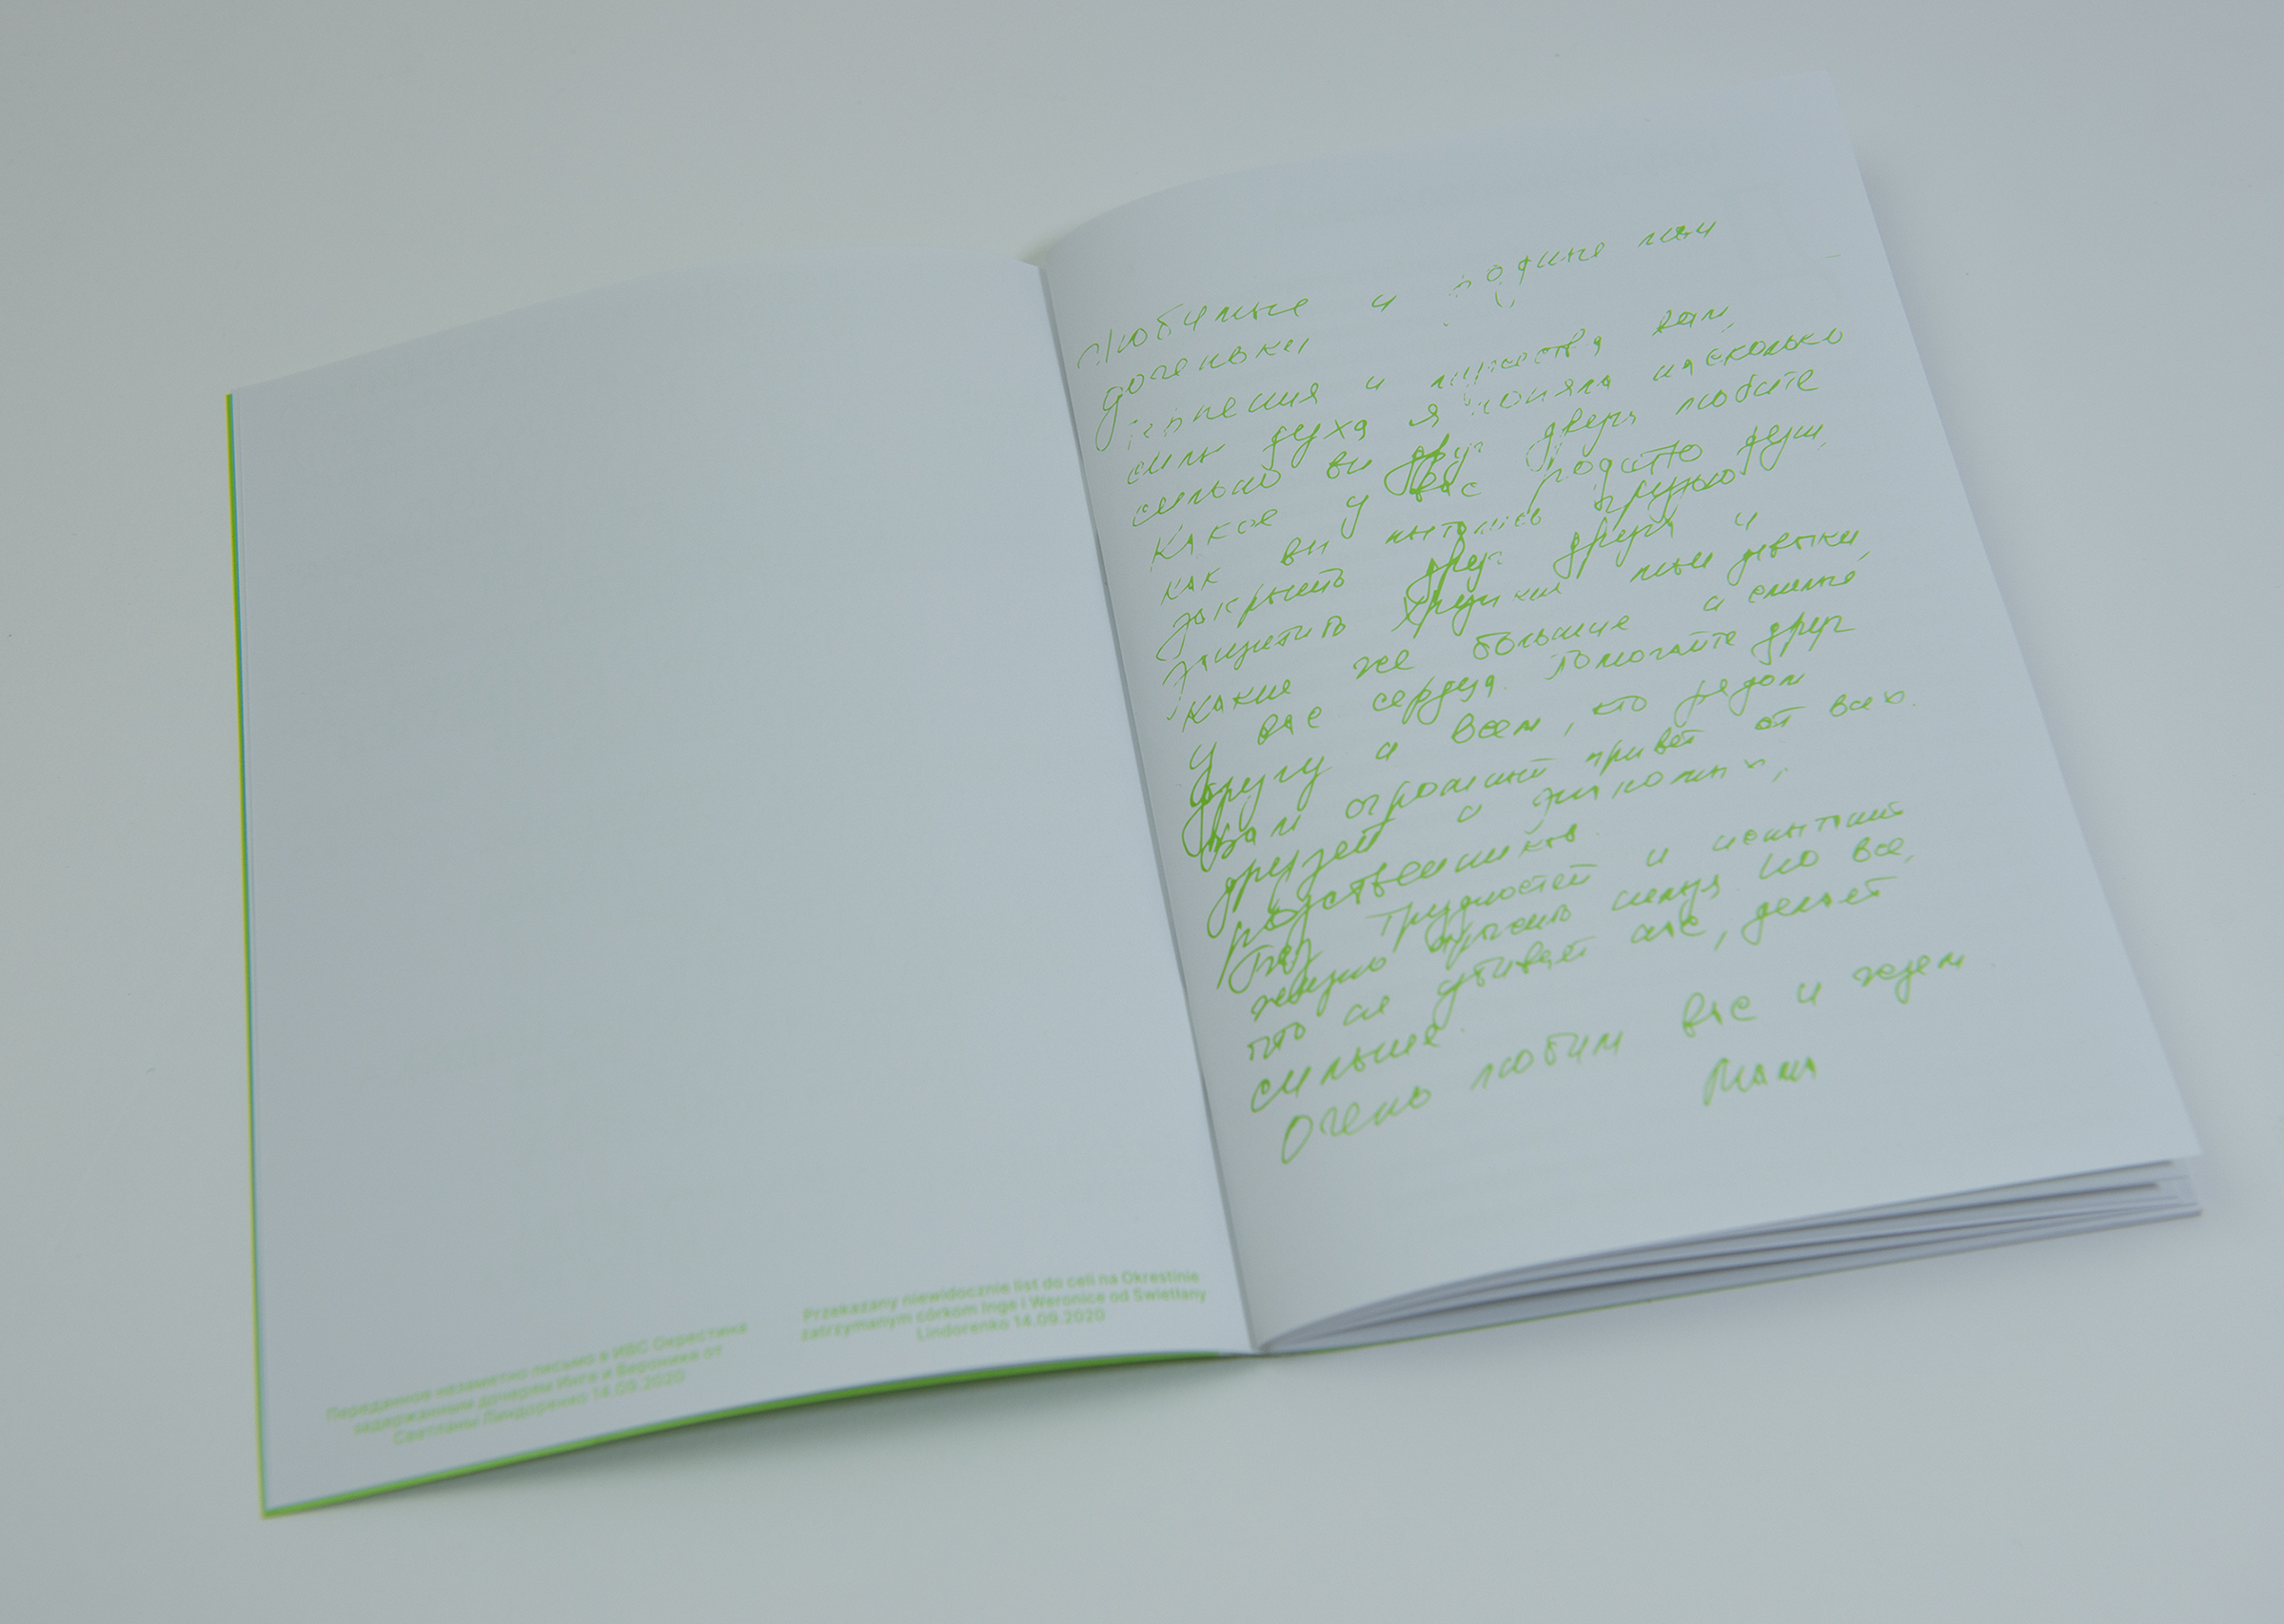 Переданное незаметно письмо в ИВС Окрестина
задержанным дочерям Инге и Веронике от
Светланы Линдоренко 14.09.2020
Przekazany niewidocznie list do celi na Okrestinie
zatrzymanym córkom Inge i Weronice od Swietłany
Lindorenko 14.09.2020
Любимые и родные мои
доченьки
терпения и мужества вам,
силы духа я поняла насколько
сильно вы друг друга любите
Какое у вас родство душ,
как вы пытались грузью
закрыть друг друга и
защитить хрупкие мои девочки,
какие же большие и сильные
у вас сердца. Помогайте друг
другу и всем, кто рядом
Вам огромный привет от всех.
друзей и знакомых,
родственников
Без трудностей и испытаний
жизнь прожить нельзя но все,
что не убивает нас, делает
сильнее.
Очень любим вас и ждем
Мама